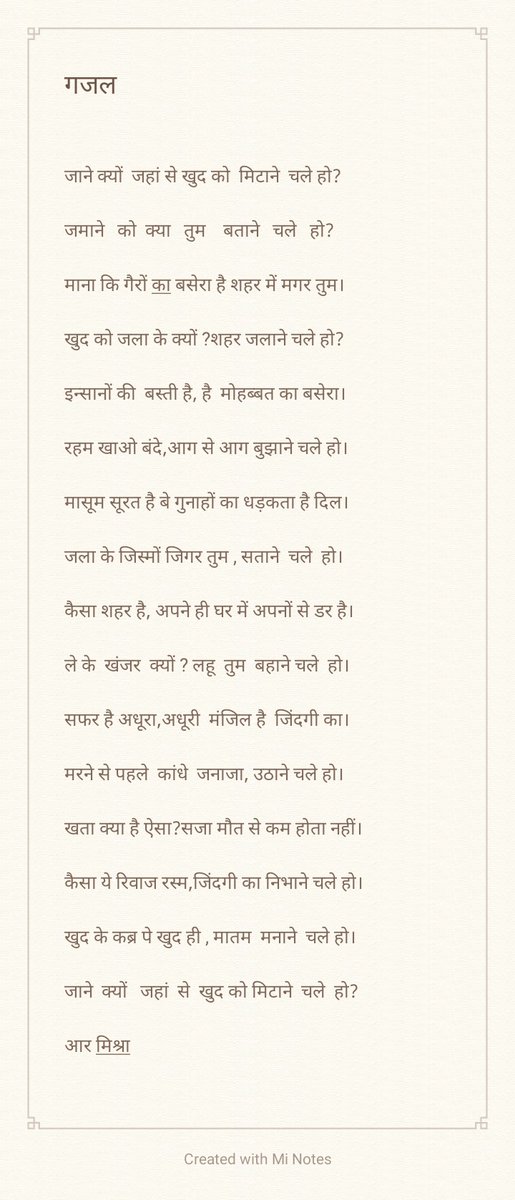 गजल
जाने क्यों जहां से खुद को मिटाने चले हो?
जमाने को क्या तुम बताने चले हो?
माना कि गैरों का बसेरा है शहर में मगर तुम।
खुद को जला के क्यों ?शहर जलाने चले हो?
इन्सानों की बस्ती है, है मोहब्बत का बसेरा।
रहम खाओ बंदे,आग से आग बुझाने चले हो।
मासूम सूरत है बे गुनाहों का धड़कता है दिल।
जला के जिस्मों जिगर तुम , सताने चले हो।
कैसा शहर है, अपने ही घर में अपनों से डर है।
ले के खंजर क्यों ? लहू तुम बहाने चले हो।
सफर है अधूरा,अधूरी मंजिल है जिंदगी का।
मरने से पहले कांधे जनाजा, उठाने चले हो।
खता क्या है ऐसा?सजा मौत से कम होता नहीं।
कैसा ये रिवाज रस्म,जिंदगी का निभाने चले हो।
खुद के कब्र पे खुद ही , मातम मनाने चले हो।
जाने क्यों जहां से खुद को मिटाने चले हो?
आर मिश्रा
Created with Mi Notes